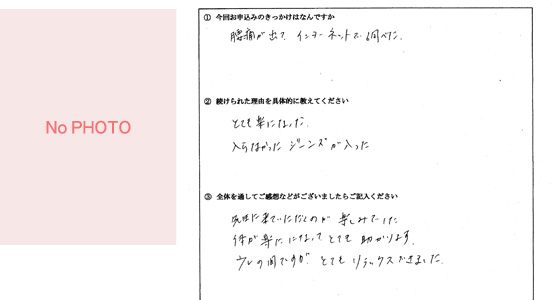 No PHOTO
① 今回お申込みのきっかけはなんですか
腰痛が出て インターネットで調べた.
② 続けられた理由を具体的に教えてください
とても楽になった.
入らなかった ジーンズが入った
③ 全体を通してご感想などがございましたらご記入ください
先生に来ていただくのが 楽しみでした
体が楽になって とても 助かります.
の間ですが とても リラックスできました.